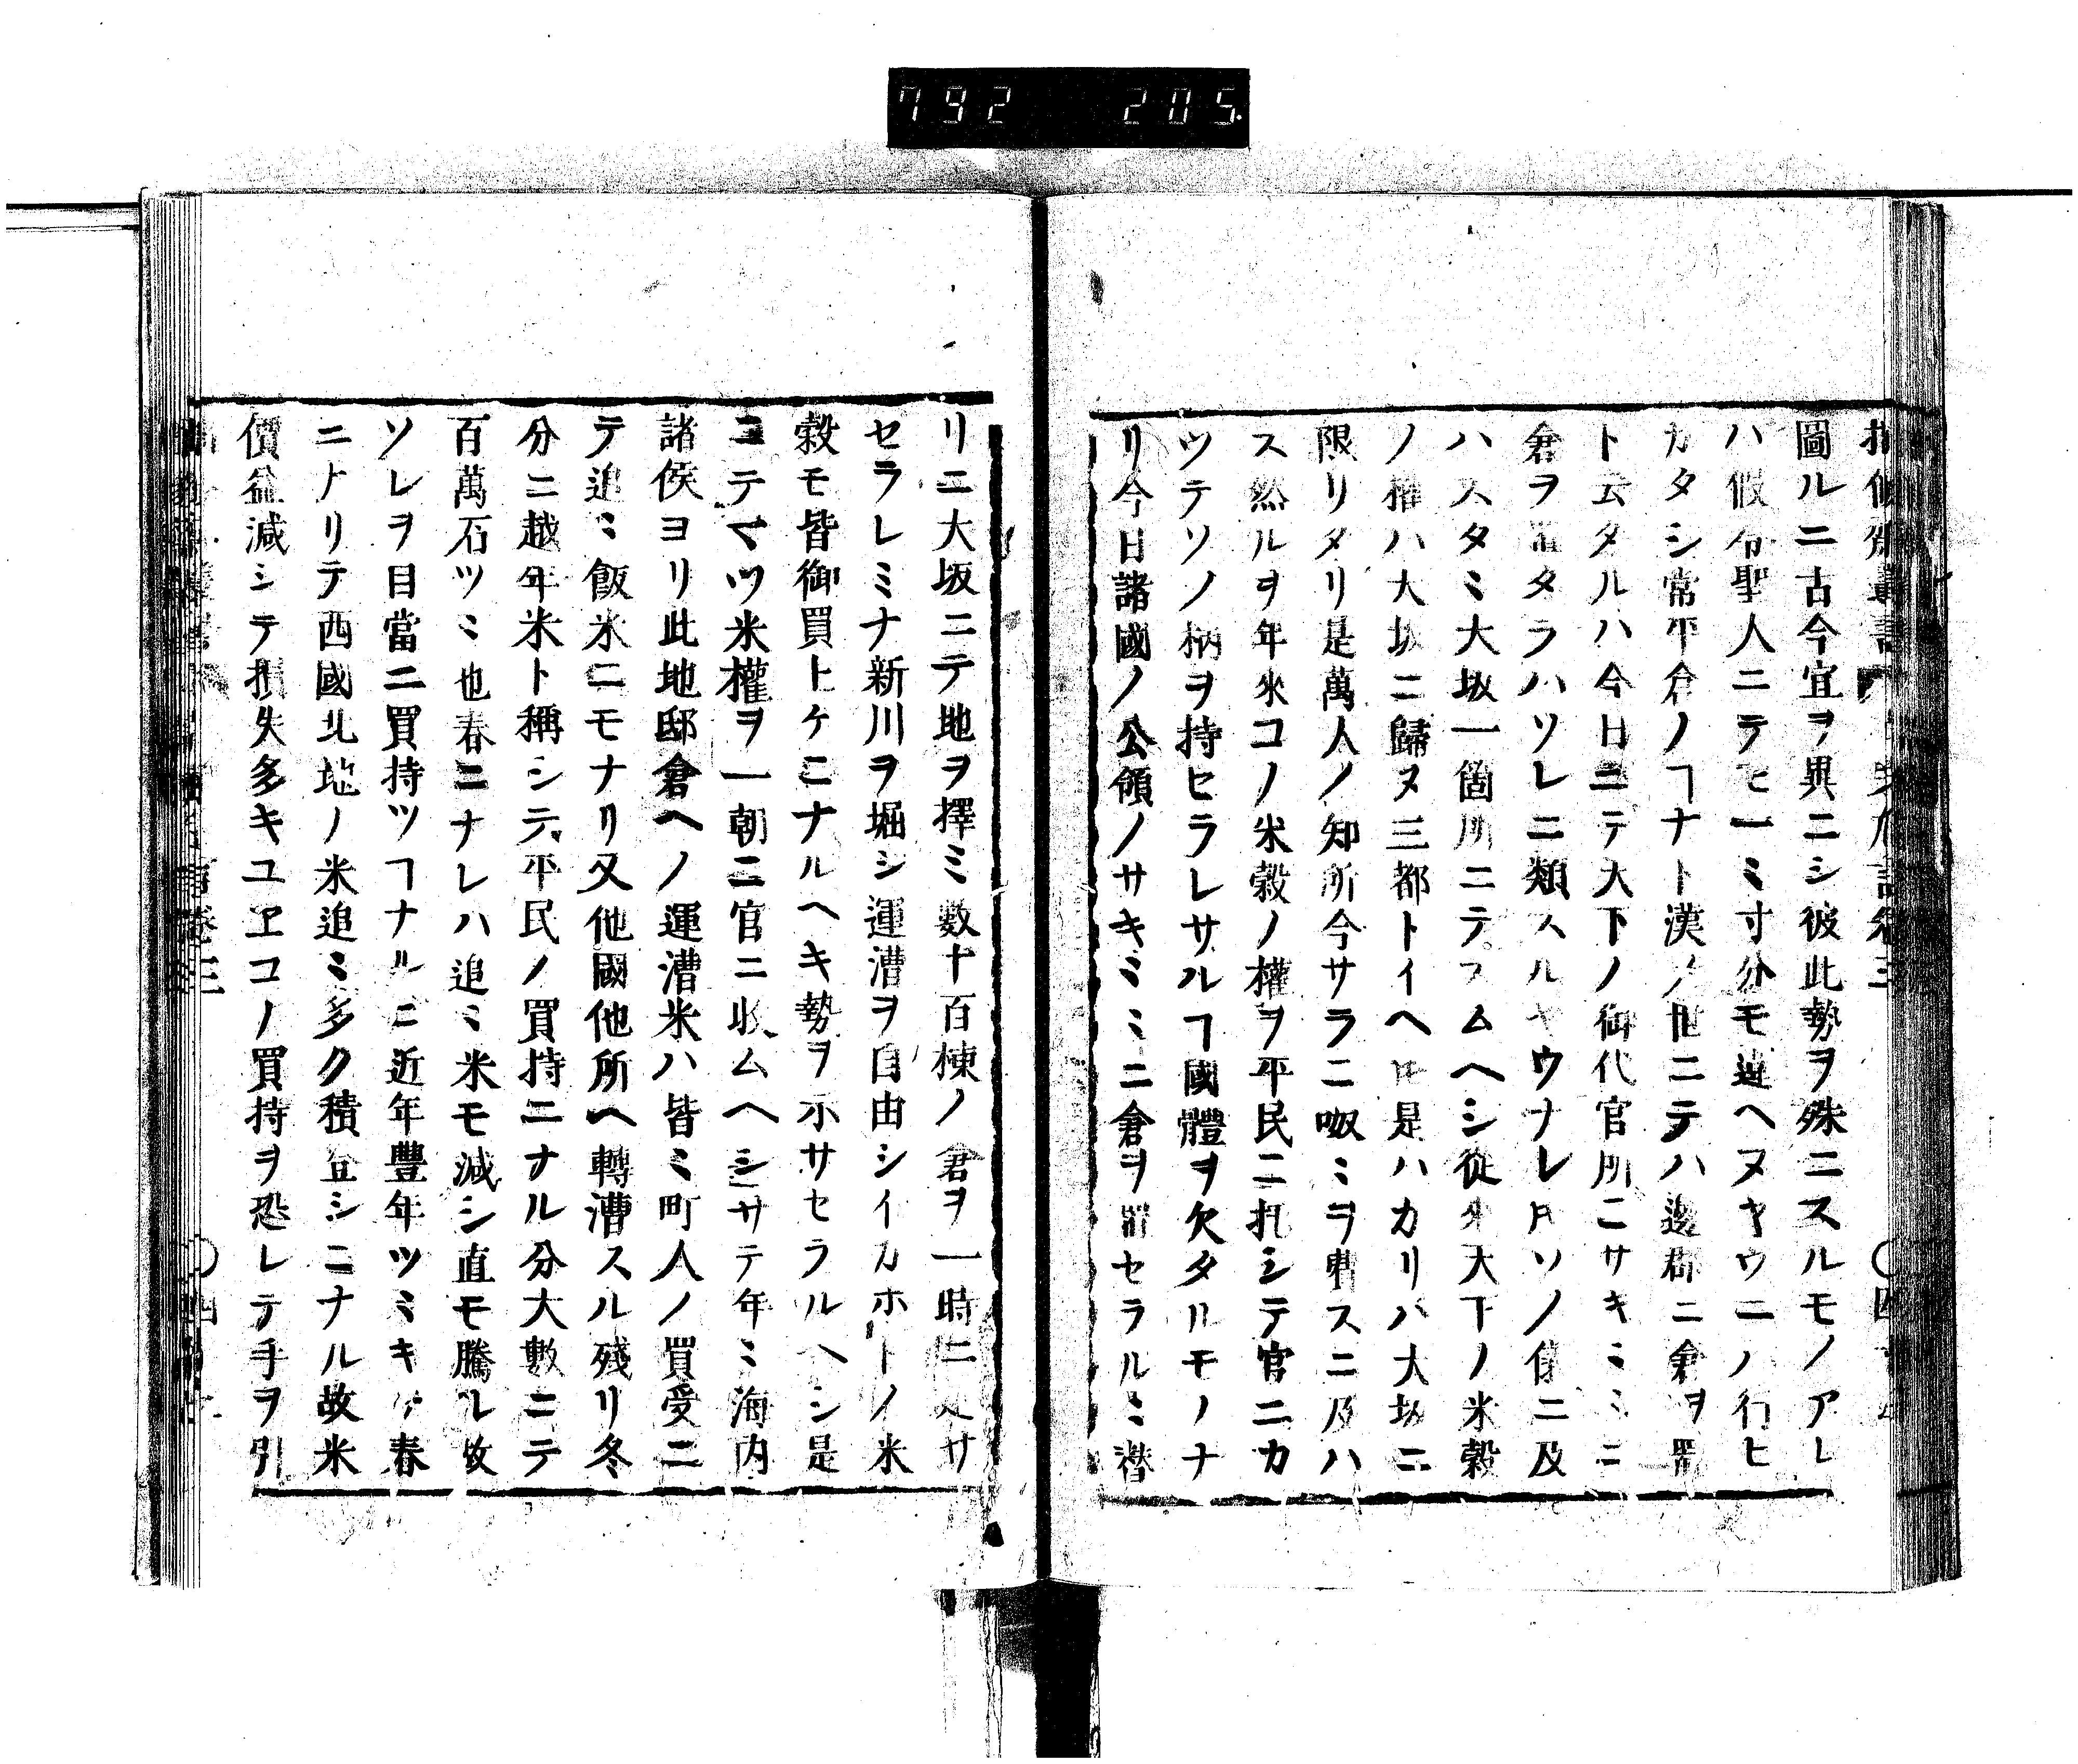 792 205
圖ルニ古今宜ヲ異ニシ彼此勢ヲ殊ニスルモノアレ
ハ假令聖人ニテモ一ミ寸分モ違ヘヌヤウニノ行ヒ
カタシ常平倉ノヿナト漢ノ世ニテハ邊郡ニ倉ヲ置
ト云タルハ今日ニテ大下ノ御代官所ニサキミミニ
倉ヲ置タラハソレニ類スルヤウナレ𪜈ソノ儀ニ及
ハスタミ大坂一箇所ニテスムヘシ從來大下ノ米穀
ノ權ハ大坂ニ歸ヌ三都トイヘ𪜈是ハカリハ大坂ニ
限リタリ是萬人ノ知所今サラニ呶ミヲ費スニ及ハ
ス然ルヲ年來コノ米穀ノ權ヲ平民ニ托シテ官ニカ
ツテソノ柄ヲ持セラレサルヿ國體ヲ欠タルモノナ
リ今日諸國ノ公領ノサキミミニ倉ヲ置セラルミ替
リニ大坂ニテ地ヲ擇ミ数十百棟ノ倉ヲ一時ニ建サ
セラレミナ新川ヲ堀シ運漕ヲ自由シイカホトノ米
穀モ皆御買上ケニナルヘキ勢ヲ示サセラルヘシ是
ニテマツ米權ヲ一朝ニ官ニ收ムヘシサテ年ミ海内
諸侯ヨリ此地邸倉ヘノ運漕米ハ皆ミ町人ノ買受ニ
テ追ミ飯米ニモナリ又他國他所ヘ轉漕スル残リ冬
分ニ越年米ト稱シテ平民ノ買持ニナル分大數ニテ
百萬石ツミ也春ニナレハ追ミ米モ減シ直モ騰レ故
ソレヲ目當ニ買持ツヿナルニ近年豐年ツミキ春
ニナリテ西國北地ノ米追ミ多ク積登シニナル故米
價益減シテ損失多キユヱコノ買持ヲ恐レテ手ヲ引